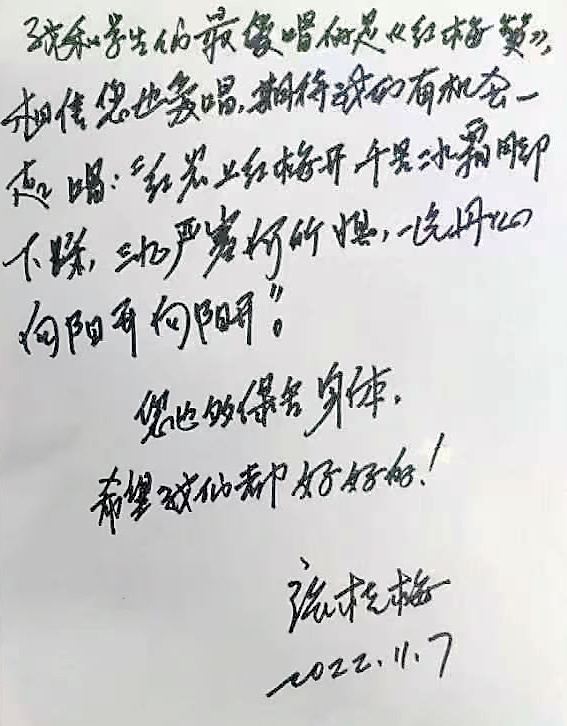 我和学生们最爱唱的是《红梅赞》，
相信您也爱唱，期待我们有机会一
起唱：“红岩上红梅开 千里冰霜脚
下踩，三九严寒何所惧，一片丹心
向阳开 向阳开”。
您也多保重身体，
希望我们都好好的！
张桂梅
2022.11.7